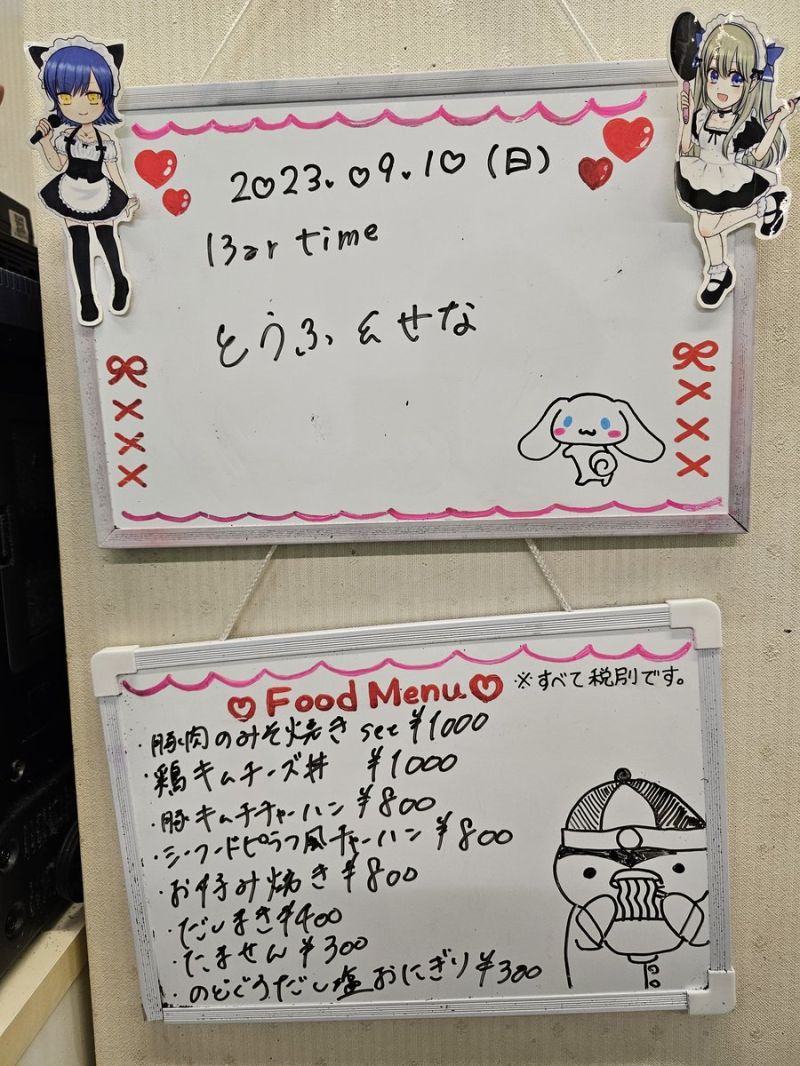 2023.09.10(日)
Bar time
とうふ & せな
Food Menu
※すべて税別です。
・豚肉のみそ焼き set ¥1000
・鶏キムチーズ丼 ¥1000
・豚キムチチャーハン ¥800
・シーフードピラフ風チャーハン ¥800
・お好み焼き ¥800
・だしまき ¥400
・たません ¥300
・のどぐろだし塩おにぎり ¥300